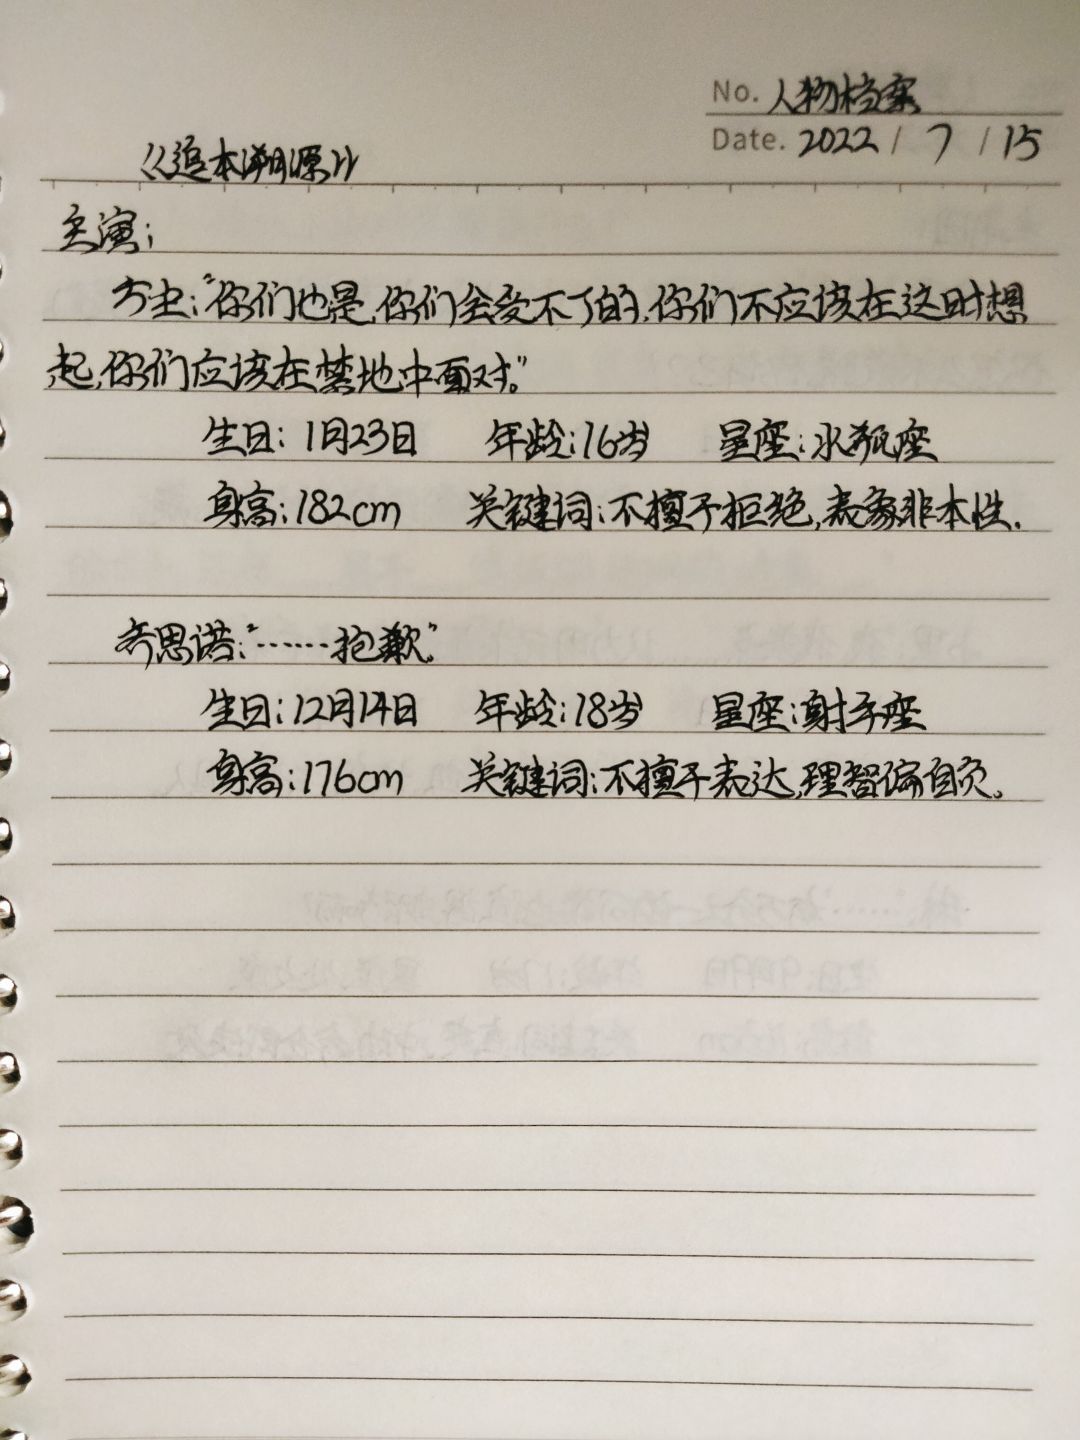 No. 人物档案
Date. 2022 / 7 / 15
《追本溯源》
主演:
方士:“你们也是,你们会受不了的,你们不应该在这时想
起,你们应该在禁地中面对。”
生日: 1月23日 年龄:16岁 星座:水瓶座
身高:182cm 关键词:不擅于拒绝,表象非本性.
齐思诺:“……抱歉”
生日:12月14日 年龄:18岁 星座:射手座
身高:176cm 关键词:不擅于表达,理智偏自负。